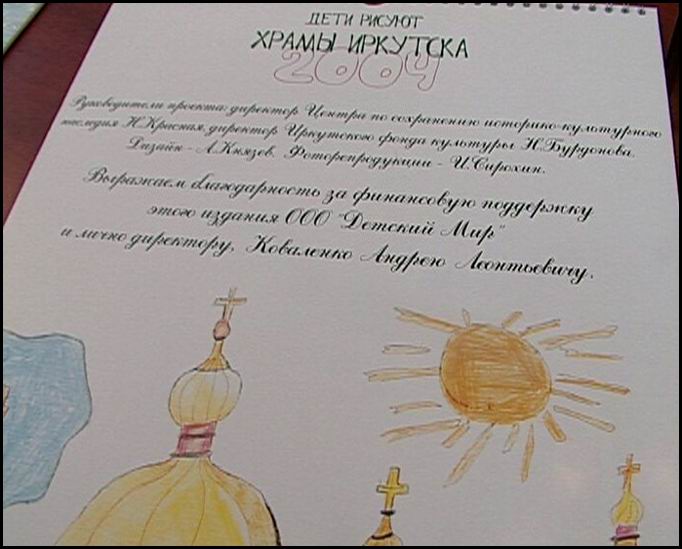 ДЕТИ РИСУЮТ
ХРАМЫ ИРКУТСКА
2004
Руководители проекта: директор Центра по сохранению историко-культурного
наследия Н.Красная, директор Иркутского фонда культуры Н.Бурдонова.
Дизайн - А.Князев. Фоторепродукции - И.Сирохин.
Выражаем благодарность за финансовую поддержку
этого издания ООО "Детский Мир"
и лично директору, Коваленко Андрею Леонтьевичу.